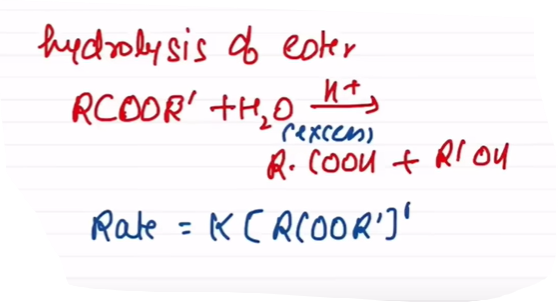 hydrolysis of ester
RCOOR' + H₂O H+ →
(excess)
R. COOH + R'OH
Rate = K [RCOOR']'